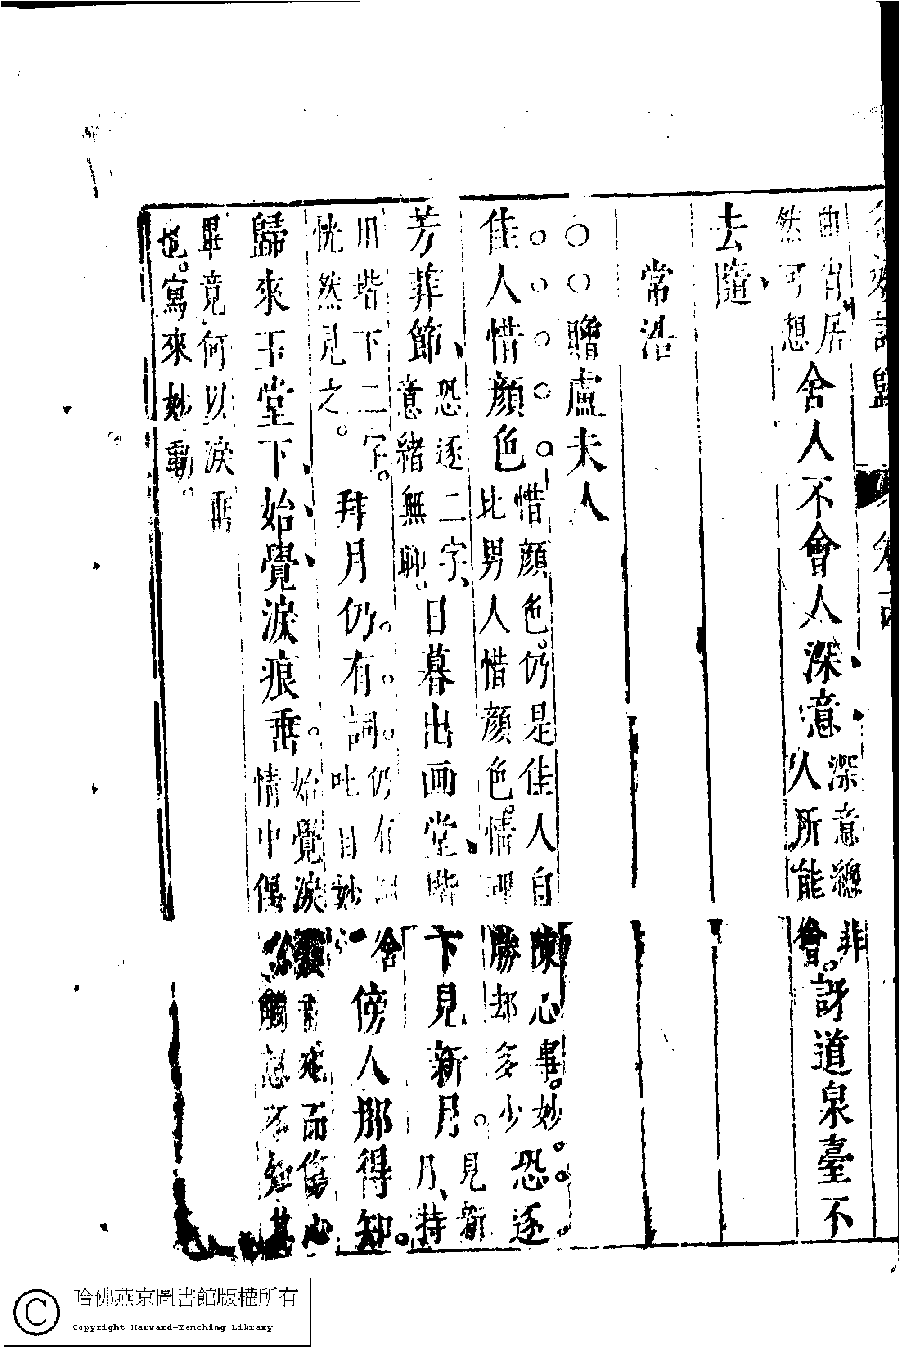 居
然可想
舍人不會人深意
深意總非
人所能會。
訝道泉臺不
去隨、
常浩
○○贈盧夫人
佳人惜顏色
惜顏色。仍是佳人自憐心事。妙
比男人惜顏色情理勝却多少
恐逐
芳菲節、
恐逐二字、
意緒無聊。
日暮出画堂、階下見新月。
見新
月、持
用堦下二字。
恍然見之。
拜月仍有詞。
仍有
吐自妙
傍人那得知。
歸來玉堂下、始覺淚痕垂。
始覺淚
而傷心
情中偶
觸忽不知其
畢竟何以淚垂
也。寫來妙動。
哈佛燕京圖書館版權所有
Copyright Harvard-Yenching Library